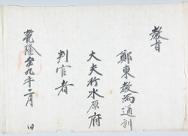 教旨
鄭東教爲通訓
大夫行水原府
判官者
乾隆 九年十二月 日